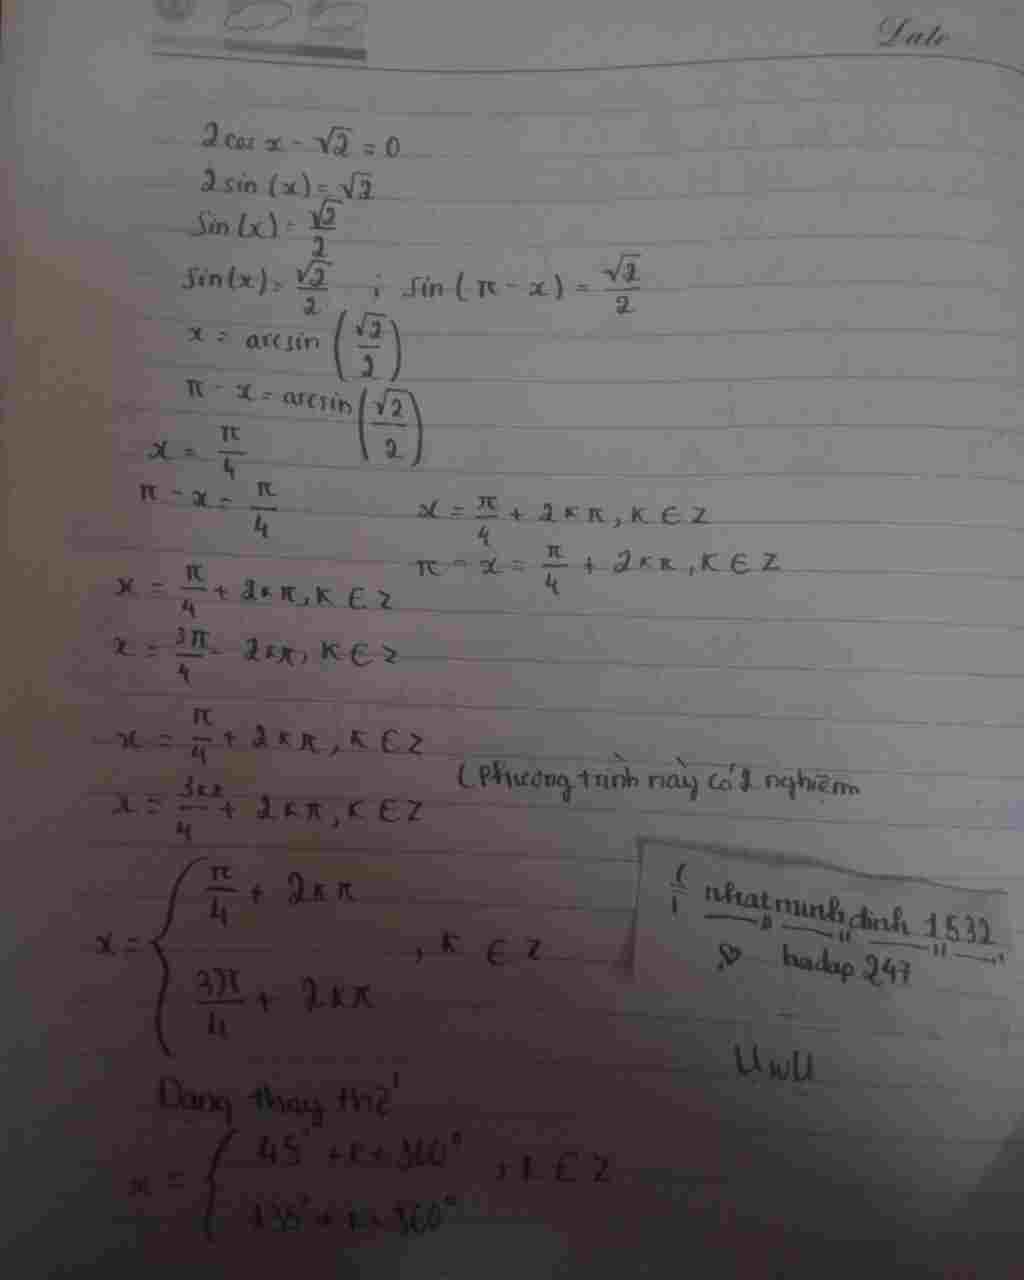 Date
2cos x - √2 = 0
2sin (x) = √2
Sin(x) = √2/2
Sin(x) = √2/2 ; sin(π - x) = √2/2
x = arcsin (√2/2)
π - x = arcsin (√2/2)
x = π/4
π - x = π/4
x = π/4 + 2kπ, k ∈ Z
π - x = π/4 + 2kπ, k ∈ Z
x = π/4 + 2kπ, k ∈ Z
x = 3π/4 - 2kπ, k ∈ Z
x = π/4 + 2kπ, k ∈ Z
(Phương trình này có 2 nghiệm
x = /4 + 2kπ, k ∈ Z
x = { π/4 + 2kπ
, k ∈ Z
3π/4 + 2kπ
nhatminhdinh 1532
hoidap 247
UwU
Dạng thay thế
x = { 45° + k × 360°
, k ∈ Z
135° + k × 360°